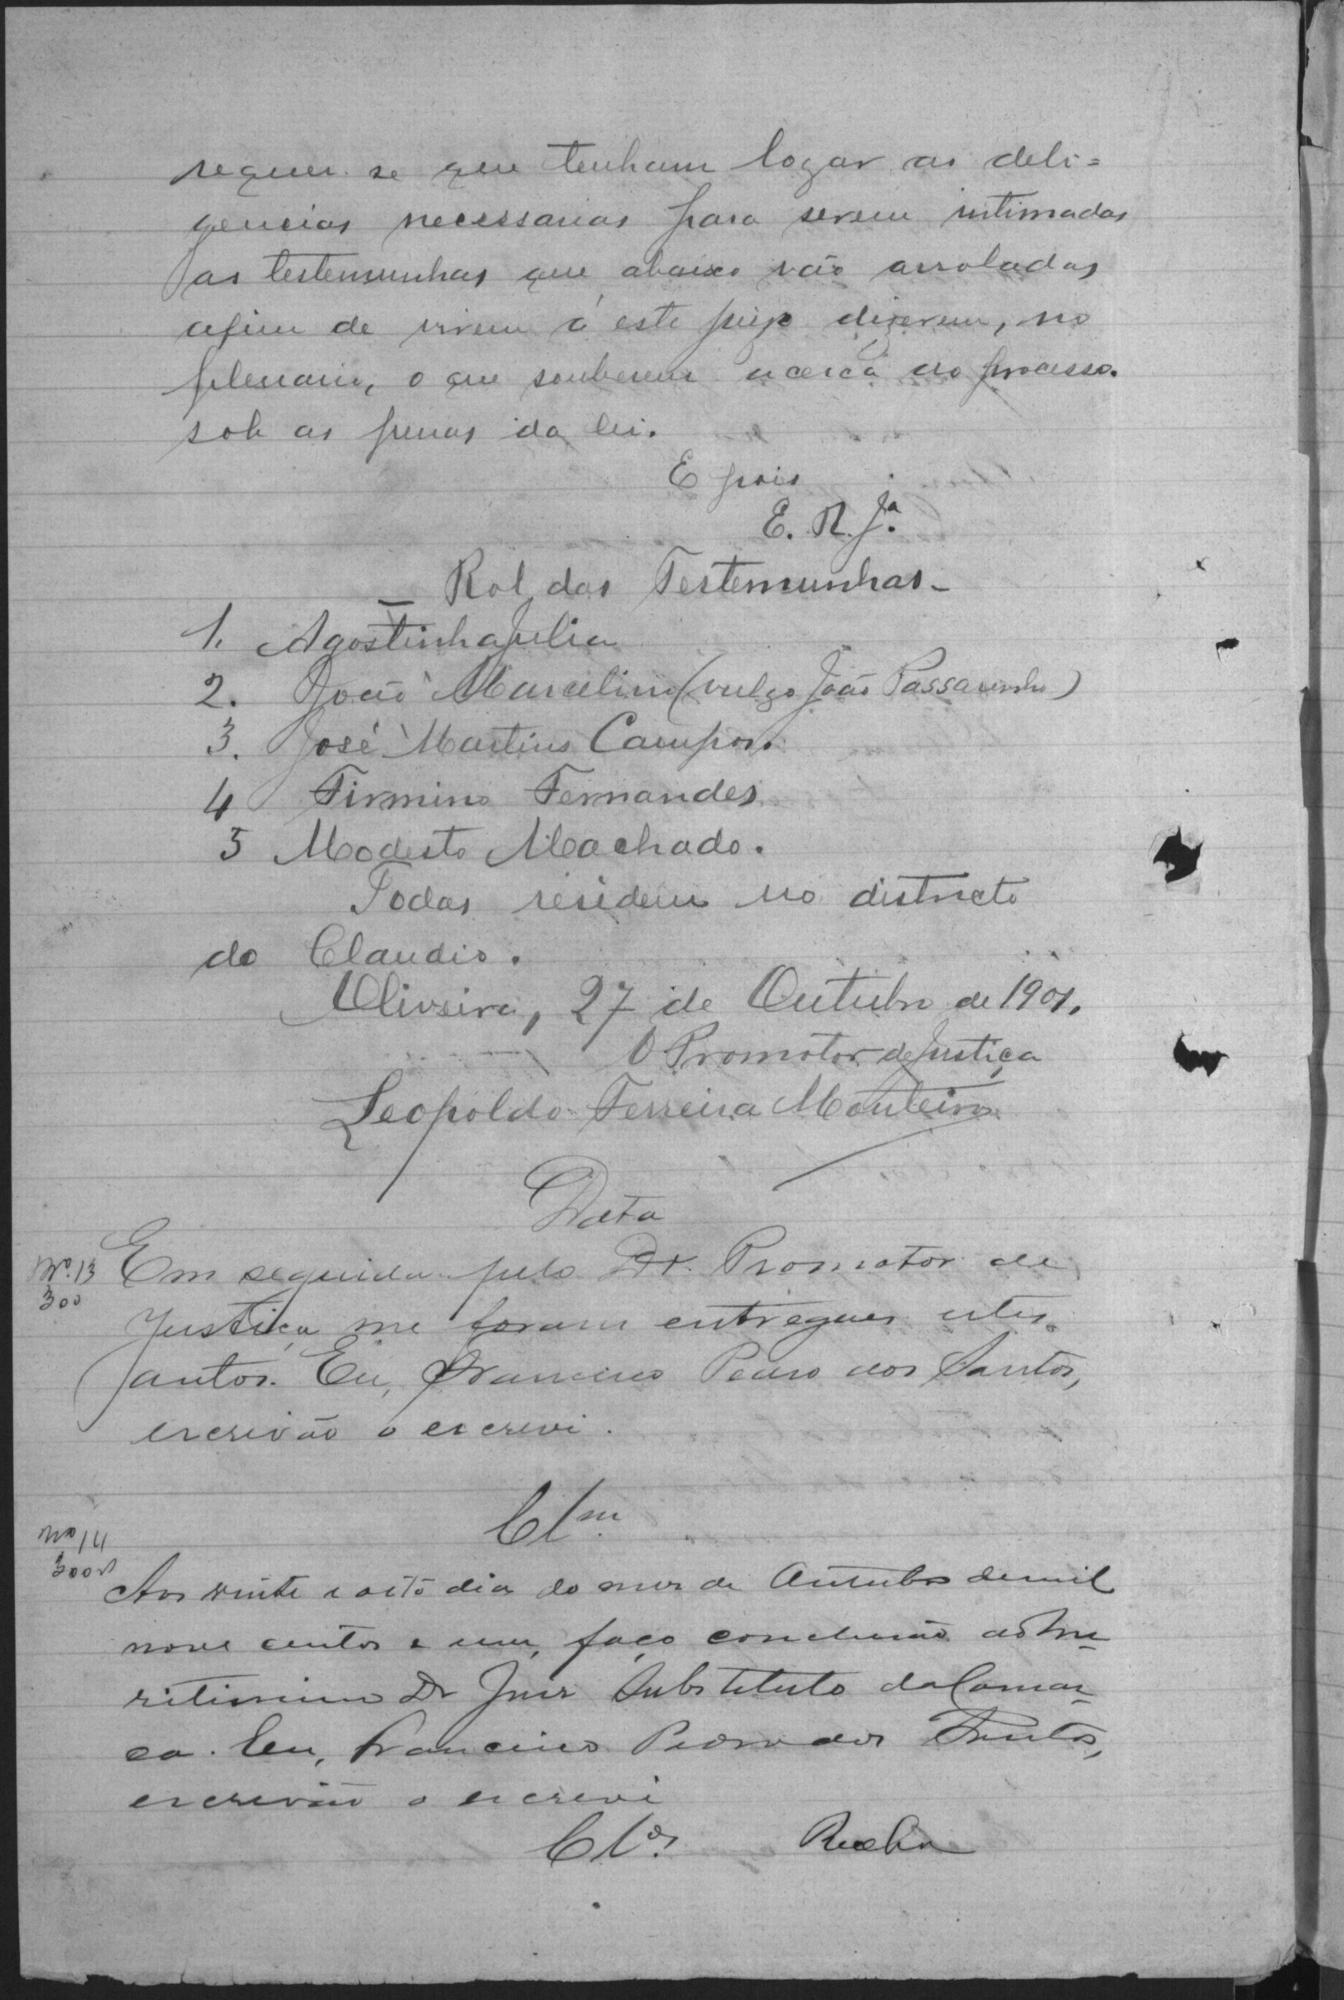 requer-se que tenham logar as deli=
gencias necessarias para serem intimadas
as testemunhas que abaixo vão arroladas
afim de virem á este juizo dizerem, no
plenario, o que souberem acerca do processo.
sob as penas da lei.
E pois
E. R. Ja.
Rol das Testemunhas-
1. Agostinha Julia
2. João Marcelino (vulgo João Passarinho)
3. José Martins Campos.
4 Firmino Fernandes
5 Modesto Machado.
Todas residem no districto
do Claudio.
Oliveira, 27 de Outubro de 1901.
O Promotor de Justiça
Leopoldo Ferreira Monteiro
Data
No. 13
300
Em seguida pelo Dr. Promotor de
Justiça me foram entregues estes
autos. Eu, Francisco Pedro dos Santos,
escrivão o escrevi.
Clm
No 14
300
Aos vinte e oito dia do mes de Outubro de mil
nove centos e um, faço conclusão ao Me-
ritissimo Dr Juiz Substituto da Comar-
ca. Eu, Francisco Pedro dos Santos,
escrivão o escrevi
Clos. Rocha